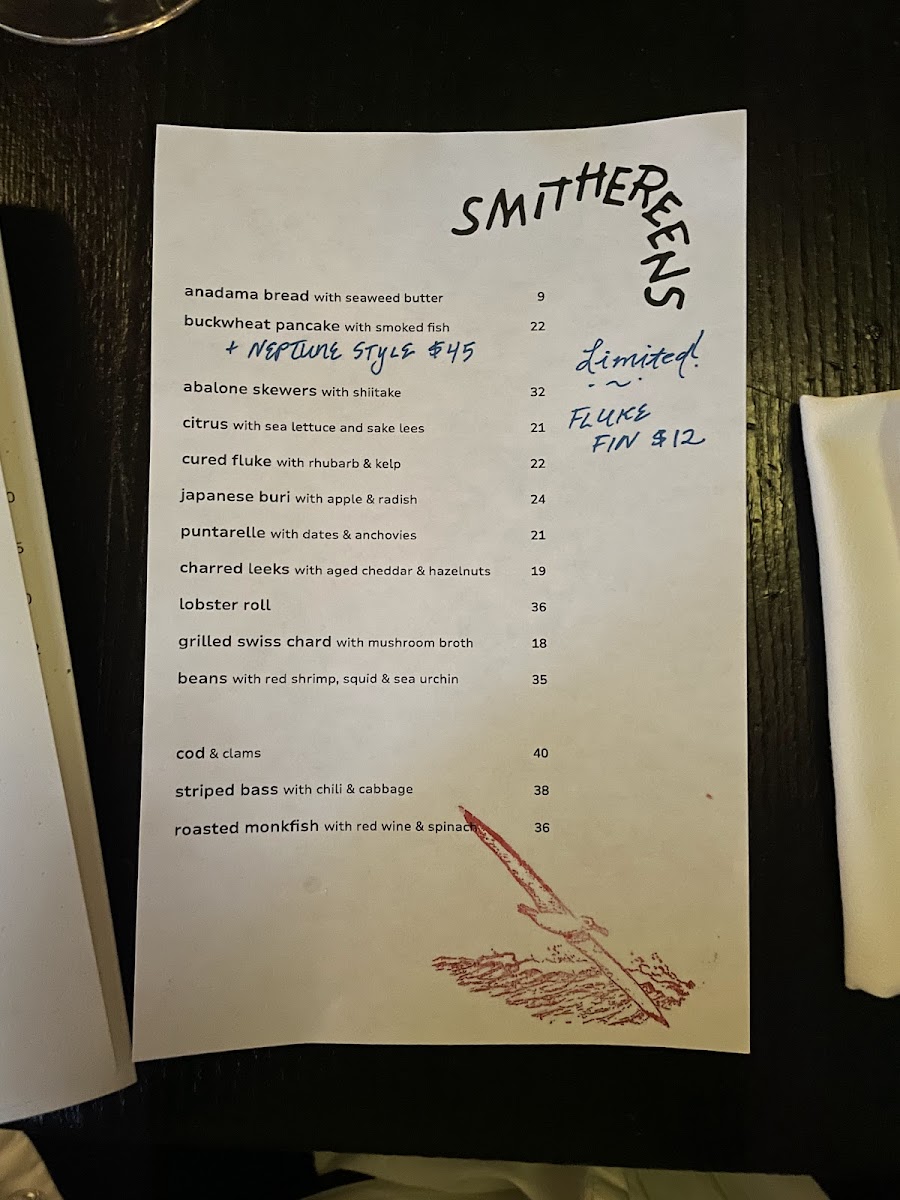 SMITHEREENS
anadama bread with seaweed butter 9
buckwheat pancake with smoked fish 22
+ NEPTUNE STYLE $45
Limited!
abalone skewers with shiitake 32
FLUKE
FIN $12
citrus with sea lettuce and sake lees 21
cured fluke with rhubarb & kelp 22
japanese buri with apple & radish 24
puntarelle with dates & anchovies 21
charred leeks with aged cheddar & hazelnuts 19
lobster roll 36
grilled swiss chard with mushroom broth 18
beans with red shrimp, squid & sea urchin 35
cod & clams 40
striped bass with chili & cabbage 38
roasted monkfish with red wine & spinach 36